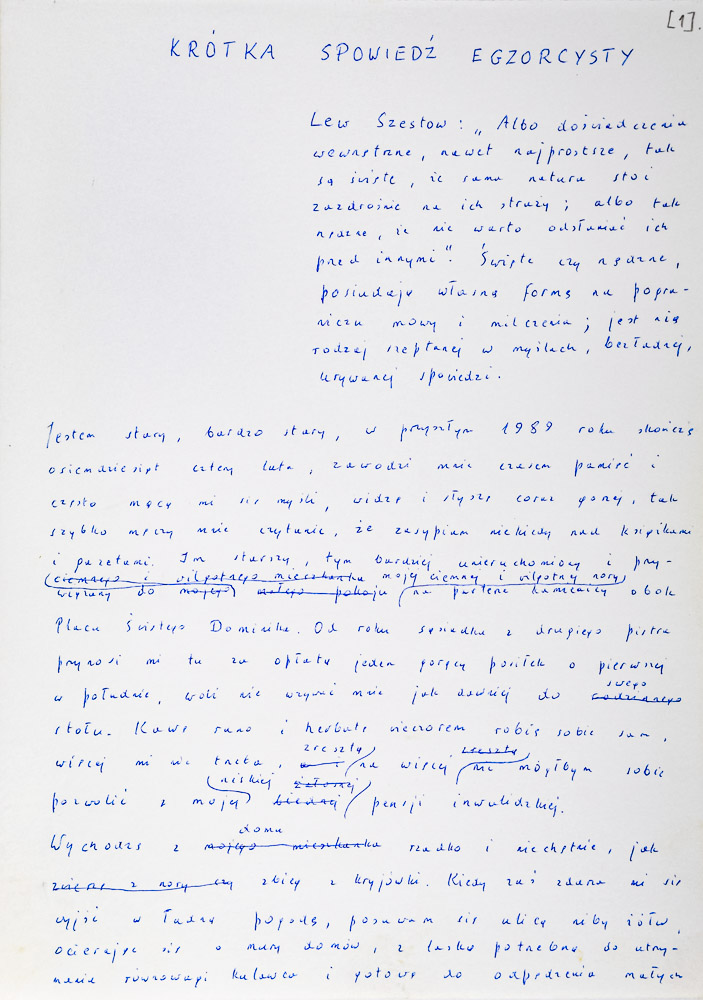 [1].
KRÓTKA SPOWIEDŹ EGZORCYSTY
Lew Szestow: „Albo doświadczenia
wewnętrzne, nawet najprostsze, tak
są święte, że sama natura stoi
zazdrośnie na ich straży; albo tak
nędzne, że nie warto odsłaniać ich
przed innymi". Święte czy nędzne,
posiadają własną formę na pogra-
niczu mowy i milczenia; jest nią
rodzaj szeptanej w myślach, bezładnej,
urywanej spowiedzi.
Jestem stary, bardzo stary, w przyszłym 1989 roku skończę
osiemdziesiąt cztery lata, zawodzi mnie czasem pamięć i
często mącą mi się myśli, widzę i słyszę coraz gorzej, tak
szybko męczy mnie czytanie, że zasypiam niekiedy nad książkami
i gazetami. Im starszy, tym bardziej unieruchomiony i przy-
ciemnego i wilgotnego mieszkanka mojej ciemnej i wilgotnej nory
wiązany do mojego małego pokoju na parterze kamienicy obok
Placu Świętego Dominika. Od roku sąsiadka z drugiego piętra
przynosi mi tu za opłatą jeden gorący posiłek o pierwszej
swego
w południe, woli nie wzywać mnie jak dawniej do rodzinnego
stołu. Kawę rano i herbatę wieczorem robię sobie sam,
zresztą zresztą
więcej mi nie trzeba, na więcej nie mógłbym sobie
niskiej żałosnej
pozwolić z mojej biednej pensji inwalidzkiej.
domu
Wychodzę z mojego mieszkanka rzadko i niechętnie, jak
zwierzę z nory czy zbieg z kryjówki. Kiedy zaś zdarza mi się
wyjść w ładną pogodę, posuwam się ulicą niby żółw,
ocierając się o mury domów, z laską potrzebną do utrzy-
mania równowagi kulawca i gotową do odpędzania małych